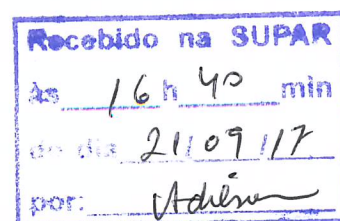 Recebido na SUPAR
às 16 h 40 min
do dia 21/09/17
por: